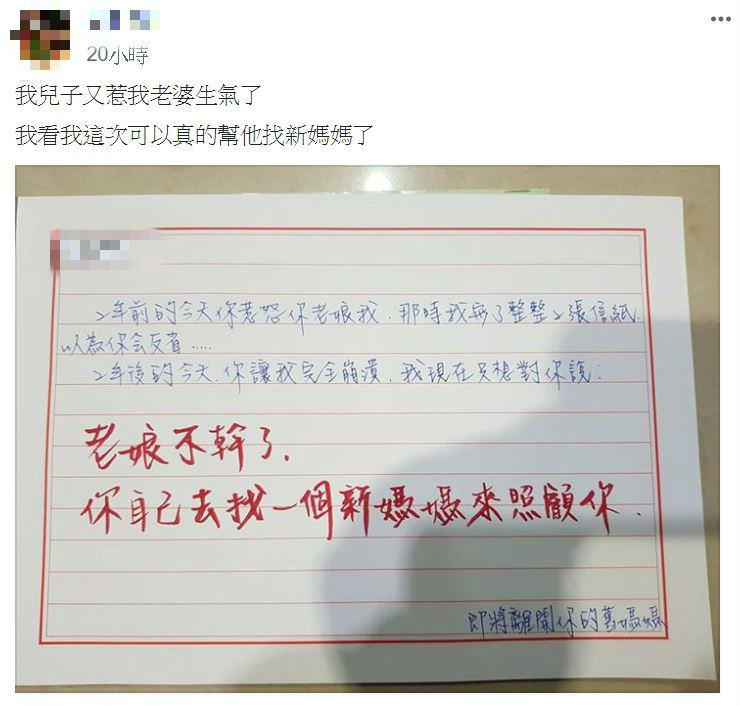 20小時
我兒子又惹我老婆生氣了
我看我這次可以真的幫他找新媽媽了
2年前的今天你惹怒你老娘我,那時我寫了整整2張信紙,
以為你会反省.....
2年後的今天,你讓我完全崩潰,我現在只想對你說:
老娘不幹了,
你自己去找一個新媽媽來照顧你.
即將離開你的舊媽媽